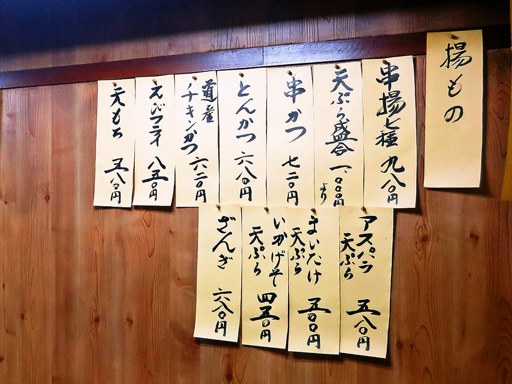 揚もの
串揚七種 九八〇円
天ぷら盛合 一、〇〇〇円より
串かつ 七二〇円
とんかつ 六八〇円
道産
チキンかつ 六二〇円
えびフライ 八五〇円
天もち 五八〇円
アスパラ
天ぷら 五八〇円
まいたけ
天ぷら 五〇〇円
いかげそ
天ぷら 四五〇円
ざんぎ 六八〇円